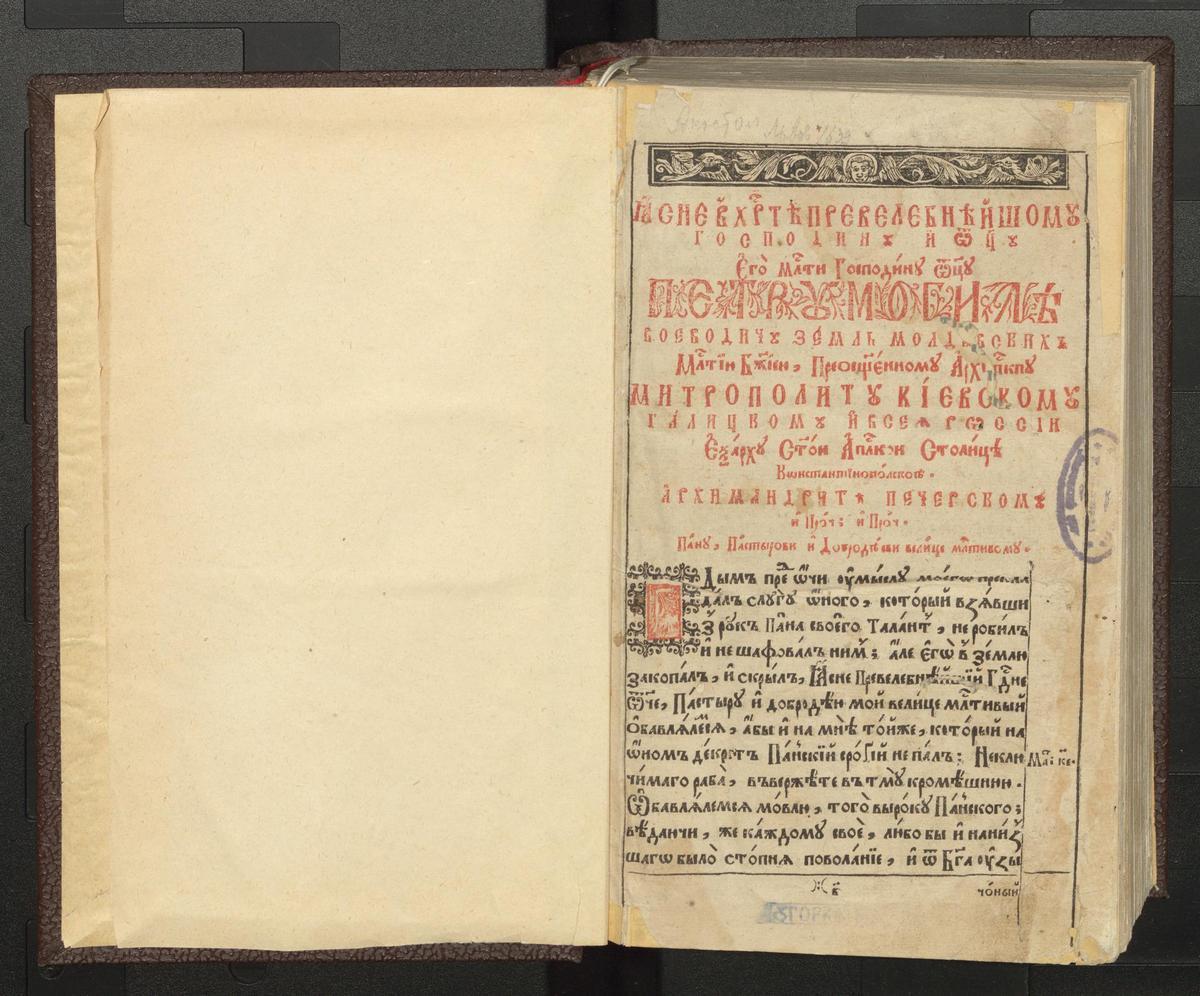 Апостол Львов 1639
Ꙗсне в̾ Хр҇тѣ превелебнѣйшому
господину и҆ ѿц҃у
Єго̀ мл҃ти Господи́ну ѿц҃у
ПЕТРУ МОГИЛѢ
воеводичу зе́мль молдавскихъ
Мл҃тїи Бж҃їеи, Преѡсщ҃е́нному Архїеп҃кпу
митрополиту кїевскому
га́лицкому и҆ всеѧ рѡссїи
Єѯа́рху Ст҃ои Ап҇лкои Столицѣ
Кѡнстантїнопо́лскоѣ.
архимандриту печерскому
и҆ Про́ч: и҆ Про́ч.
Па́ну, Пастырови и҆ Добродѣеви велице мл҃тивому.
Дымъ пре҇ ѻ҆чи оу҆мыслу моегѡ
да́лъ слугу ѻ҆ного, кото́рый взѧвши
З̾ рукъ Па́на своего Тала́нт̾, не робилъ
и҆ не шафова́лъ ним̾; а҆ле є҆гѡ̀ в̾ зе́млю
закопа́лъ, и҆ скры́лъ, Ꙗсне Превелебнѣйшїй Г҇дне
Ѿч҃е, Па́стыру и҆ добродѣю мой велице мл҃тивый
Ѻ҆бавлѧ́лемсѧ, а҆бы и҆ на мнѣ то́йже, кото́рый на
ѻ҆номъ де́кретъ Па́нскїй сро́гїй не па́лъ: Неклю
Мат: ке.
чи́маго раба̀, въве́ржѣте въ тму̀ кромѣшнюю.
Ѻ҆бавлѧ́лемсѧ мо́влю, того̀ вы́року Па́нского;
вѣ́даючи, же ка́ждому своѐ, лю́бо бы и҆ нанѝз
шагѡ было̀ сто́пнѧ повола́нїе, и҆ ѿ Бг҃а оу҆ży
в҃
чо́ный